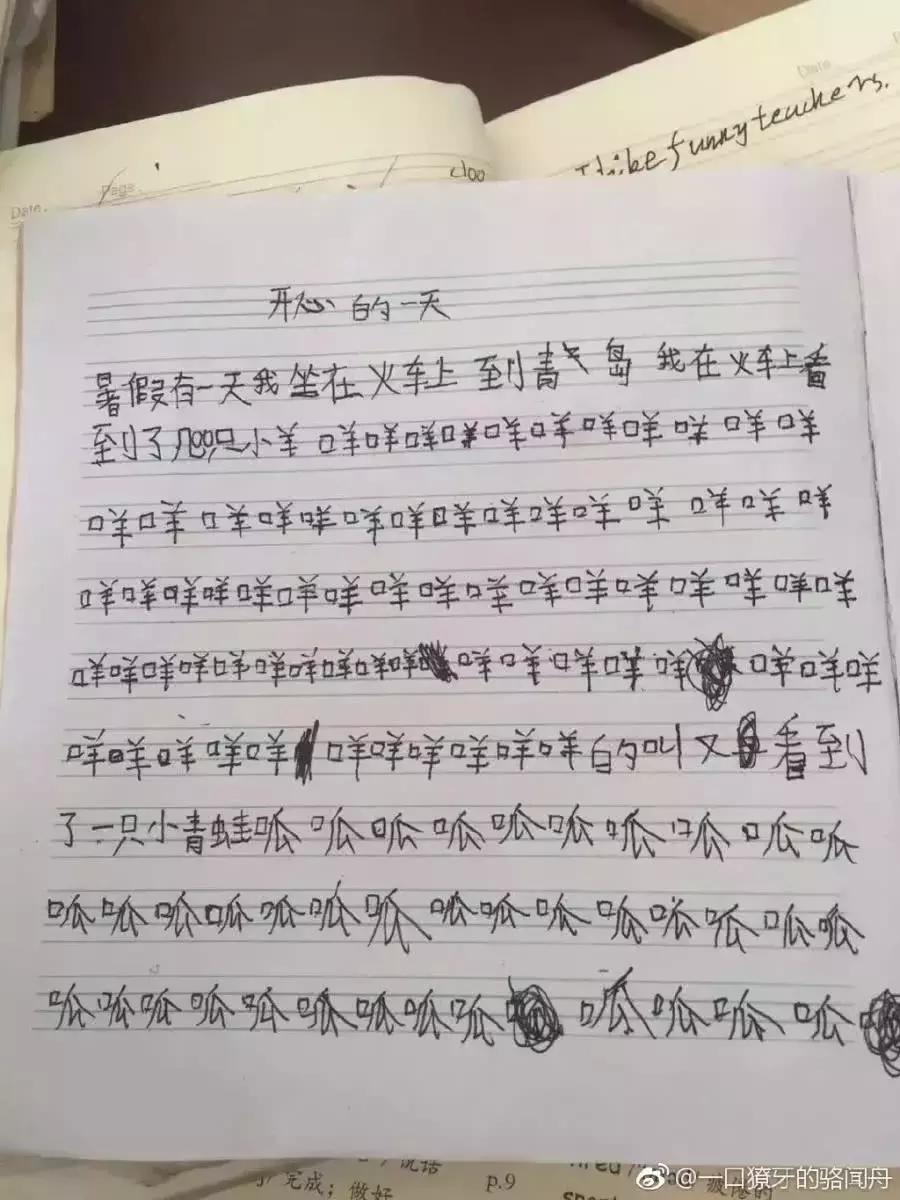 Date.
Page.
Date
I like funny teachers.
开心的一天
暑假有一天我坐在火车上到青岛我在火车上看
到了几00只小羊咩咩咩咩咩咩咩咩咩咩咩
咩咩咩咩咩咩咩咩咩咩咩咩咩咩咩
咩咩咩咩咩咩咩咩咩咩咩咩咩咩咩咩咩
咩咩咩咩咩咩咩咩咩咩咩咩咩咩咩咩咩咩
咩咩咩咩咩咩咩咩咩咩咩的叫又看到
了一只小青蛙呱呱呱呱呱呱呱呱呱呱
呱呱呱呱呱呱呱呱呱呱呱呱呱呱呱
呱呱呱呱呱呱呱呱呱呱呱呱呱
说话
完成；做好 p.9
@一口獠牙的骆闻舟